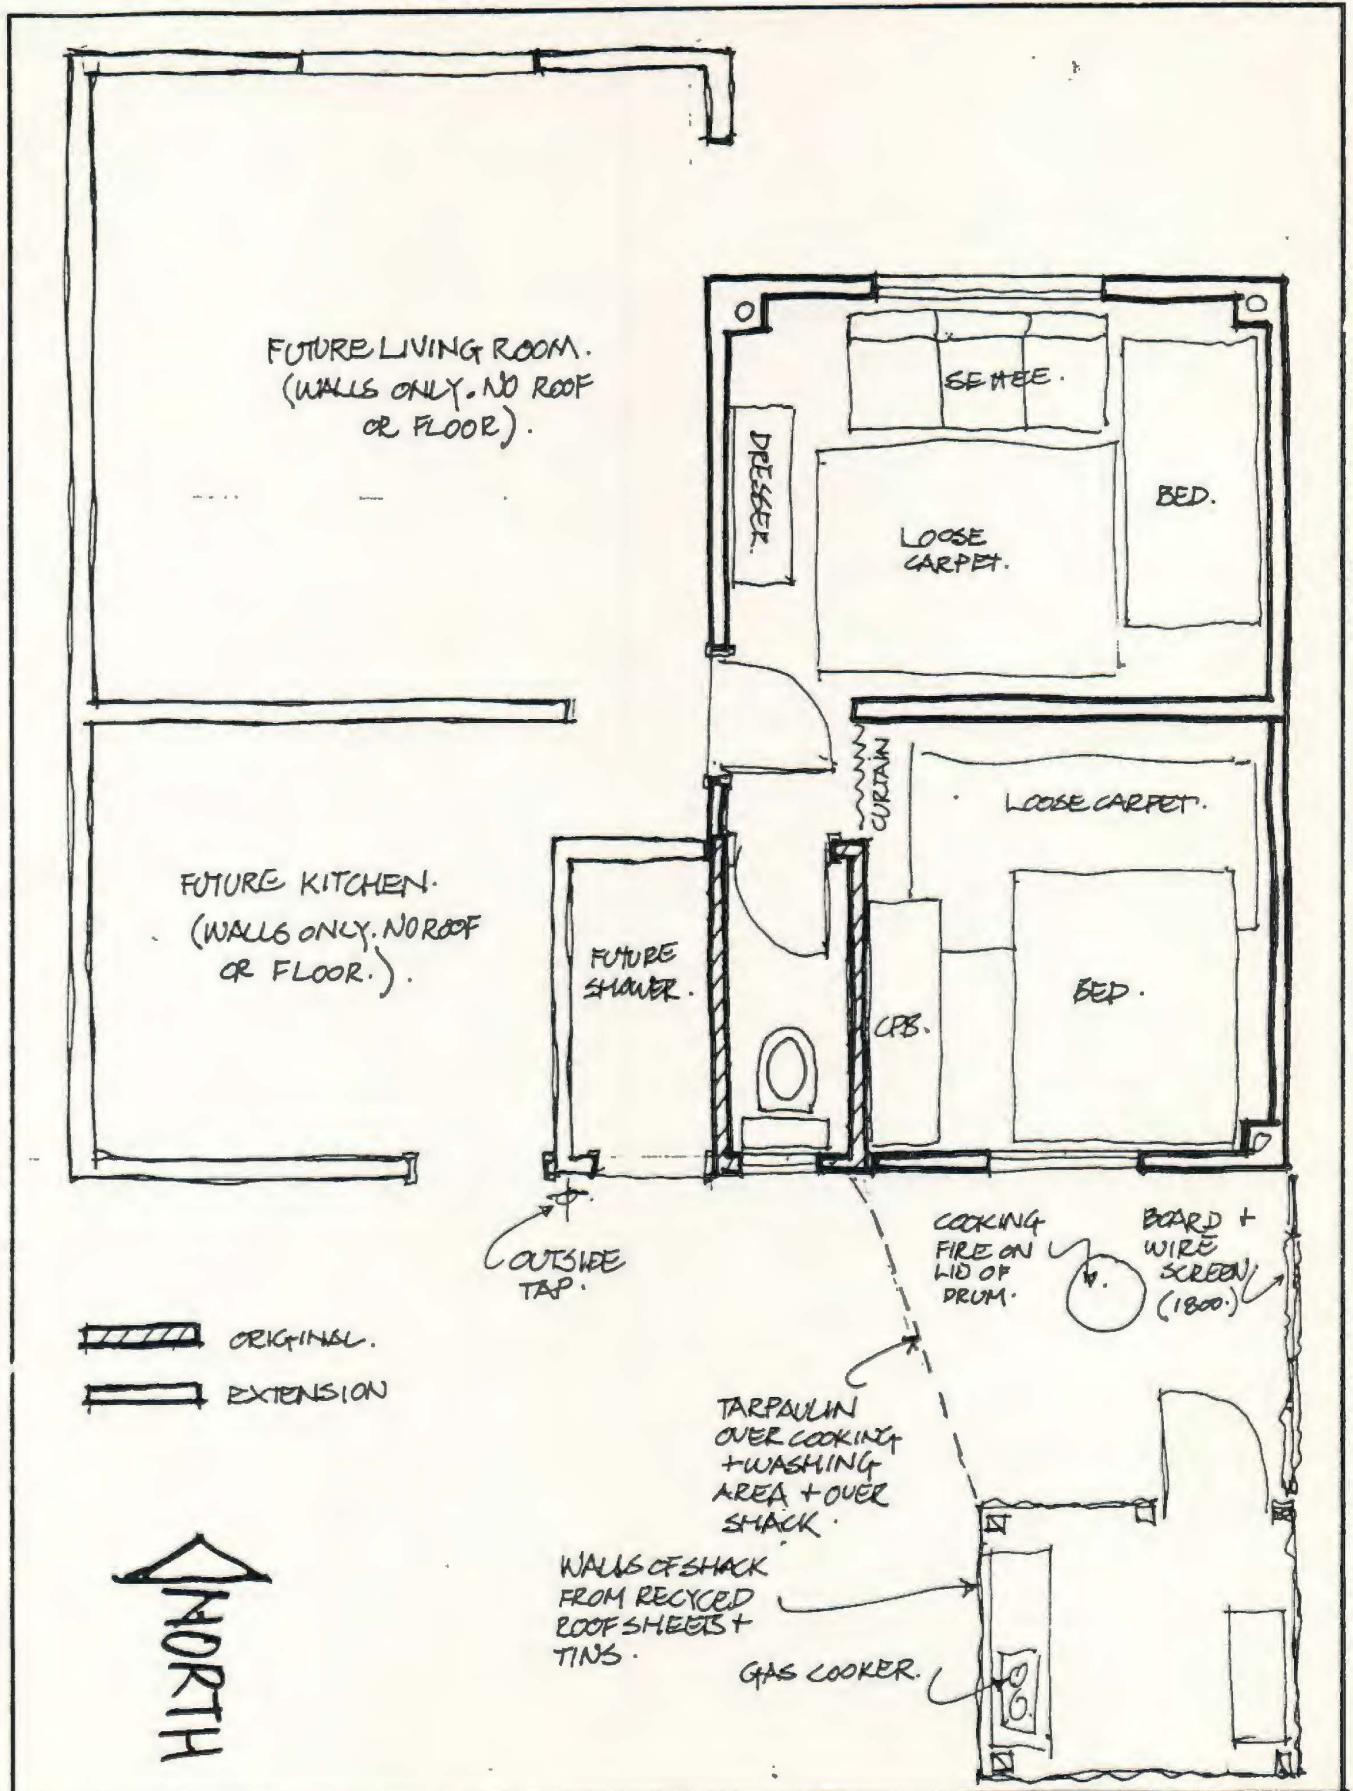 FUTURE LIVING ROOM.
(WALLS ONLY. NO ROOF
OR FLOOR).
SETTEE.
DRESSER.
BED.
LOOSE
CARPET.
CURTAIN
LOOSE CARPET.
FUTURE KITCHEN.
(WALLS ONLY. NO ROOF
OR FLOOR.).
FUTURE
SHOWER.
CPB.
BED.
OUTSIDE
TAP.
COOKING
FIRE ON
LID OF
DRUM.
BOARD +
WIRE
SCREEN
(1800.)
ORIGINAL.
EXTENSION
TARPAULIN
OVER COOKING
+ WASHING
AREA + OVER
SHACK.
WALLS OF SHACK
FROM RECYCED
ROOF SHEETS +
TINS.
GAS COOKER.
NORTH